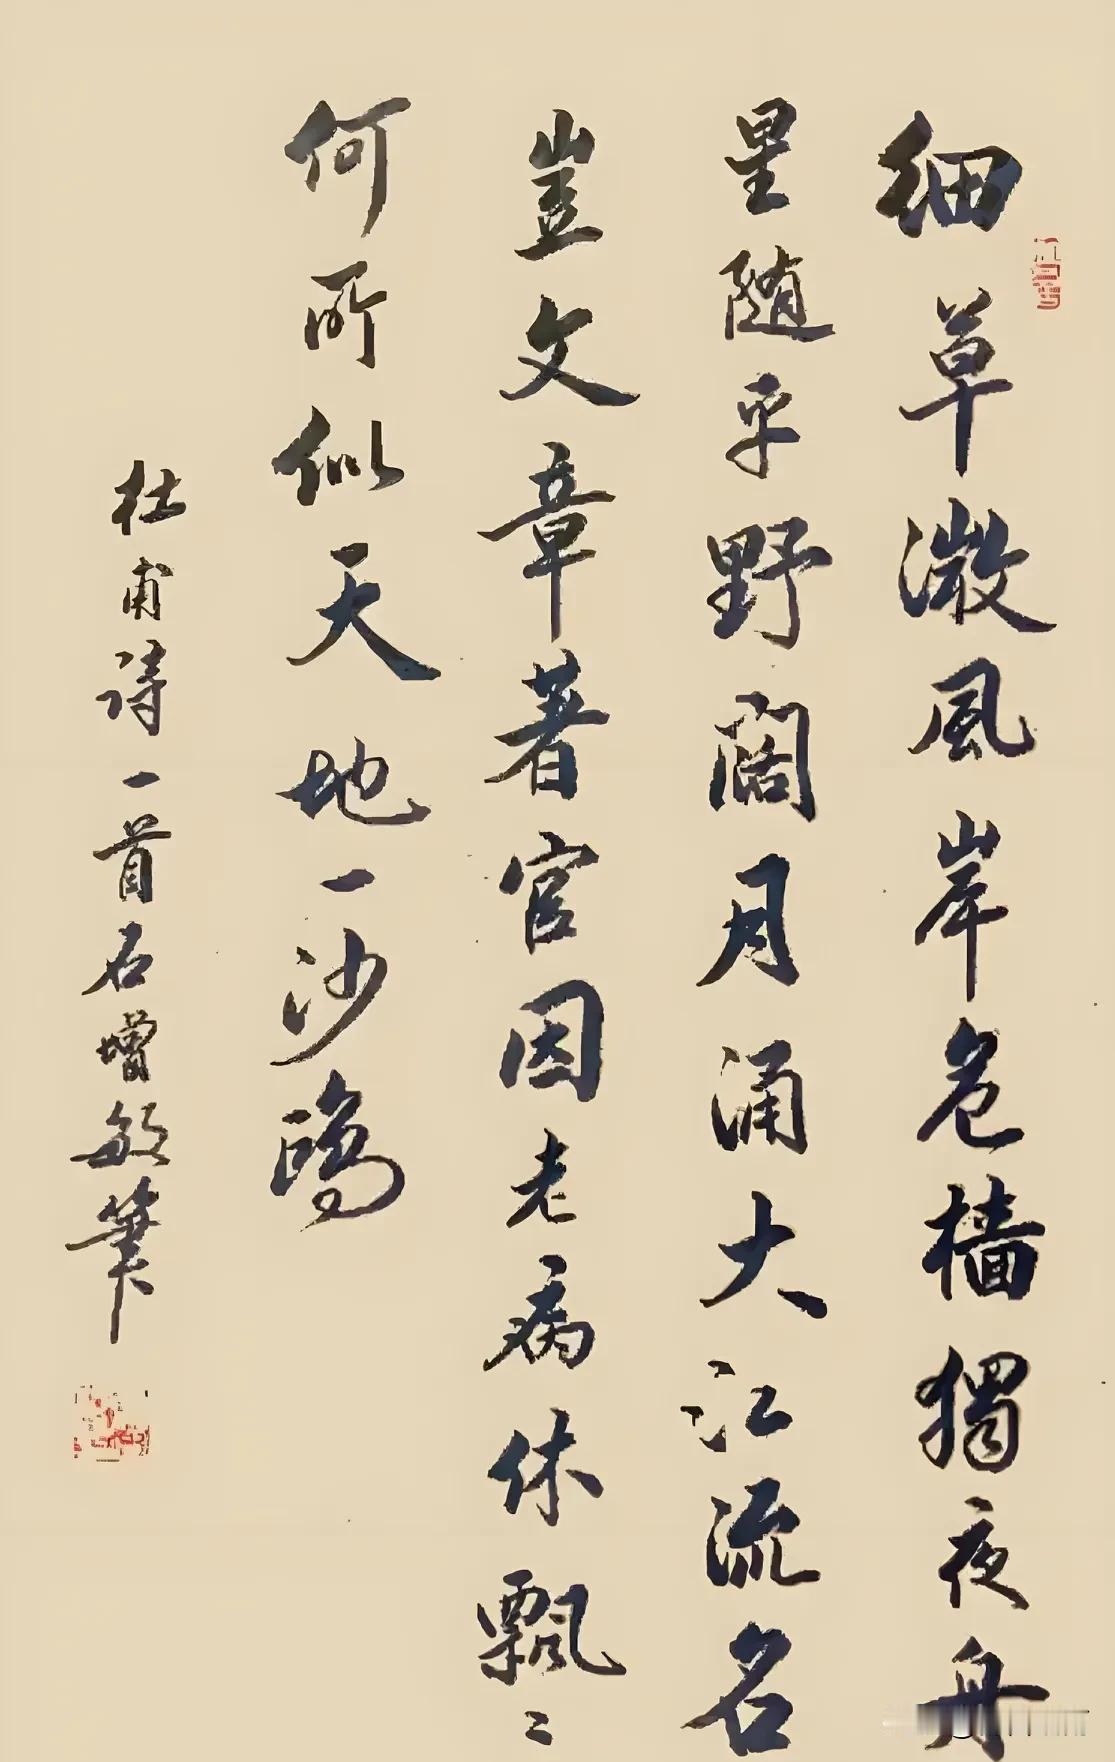 細草微風岸危檣獨夜舟
星随平野闊月涌大江流名
豈文章著官因老病休飄〻
何所似天地一沙鷗
杜甫詩一首石增敏筆